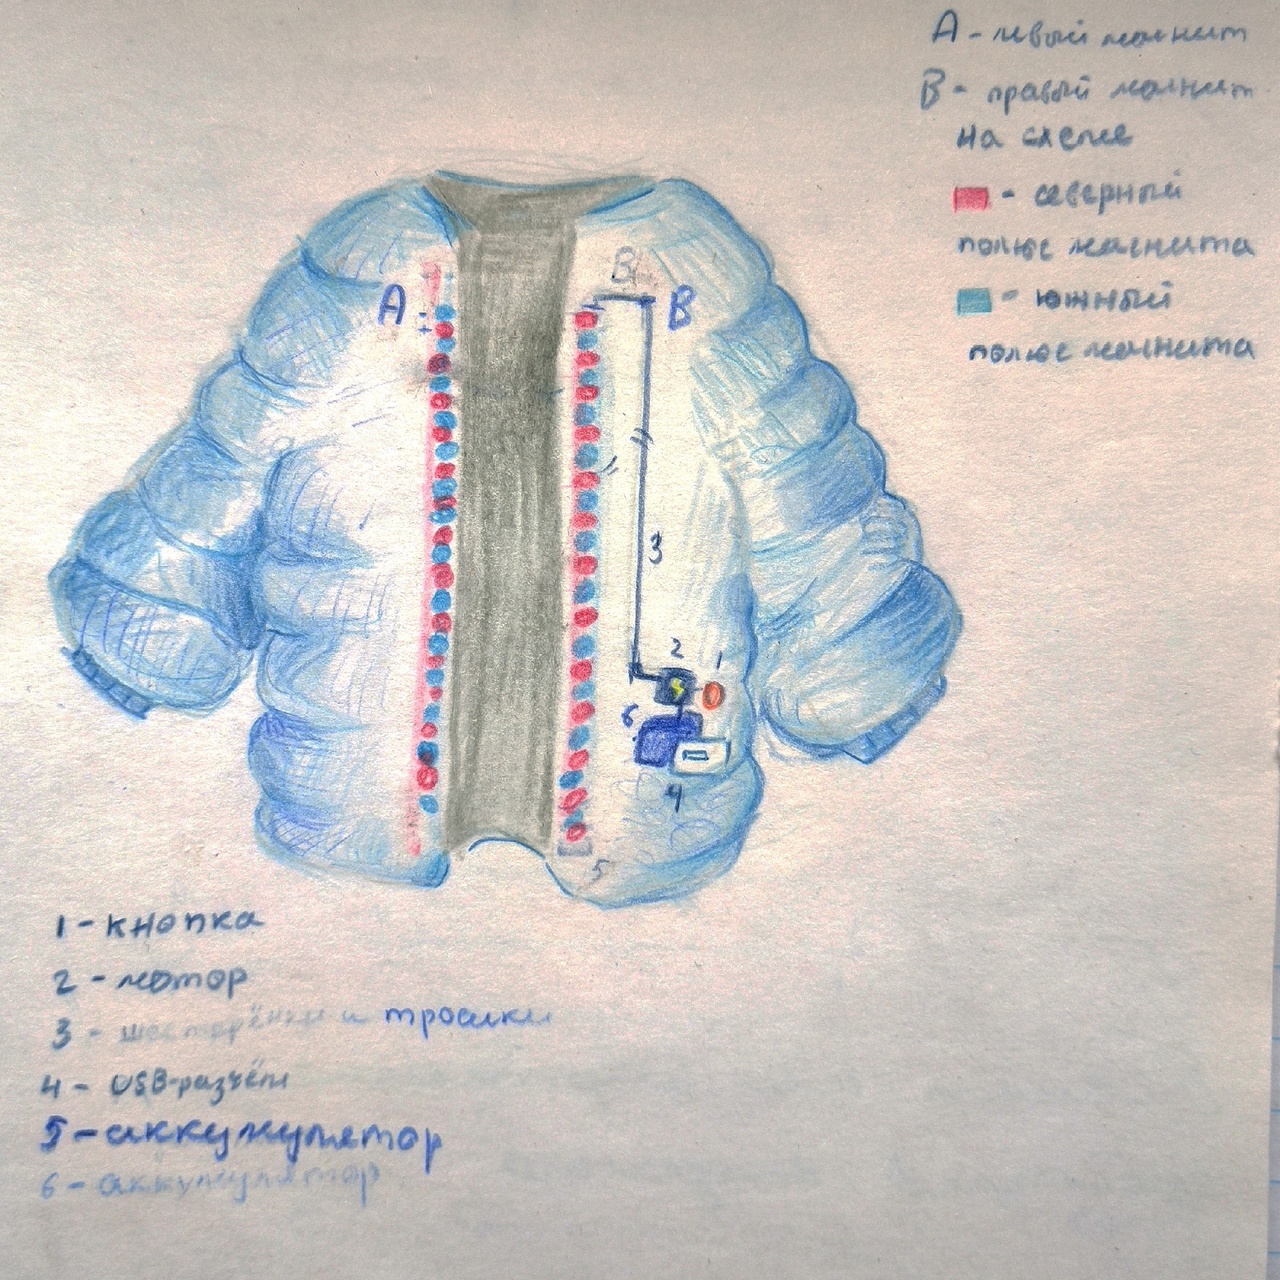 А - левый магнит
В - правый магнит
на схеме
- северный
полюс магнита
- южный
полюс магнита
В
А
В
3
2
1
6
4
5
1 - кнопка
2 - мотор
3 - шестерёнки и тросики
4 - USB-разъём
5 - аккумулятор
6 - аккумулятор